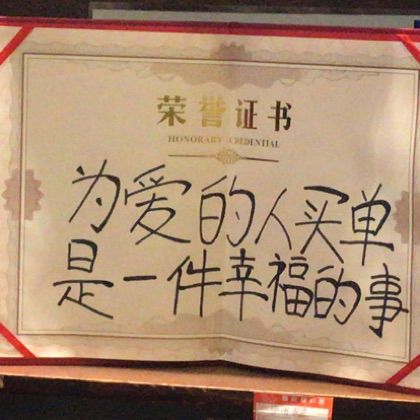 荣誉证书
HONORARY CREDENTIAL
为爱的人买单
是一件幸福的事